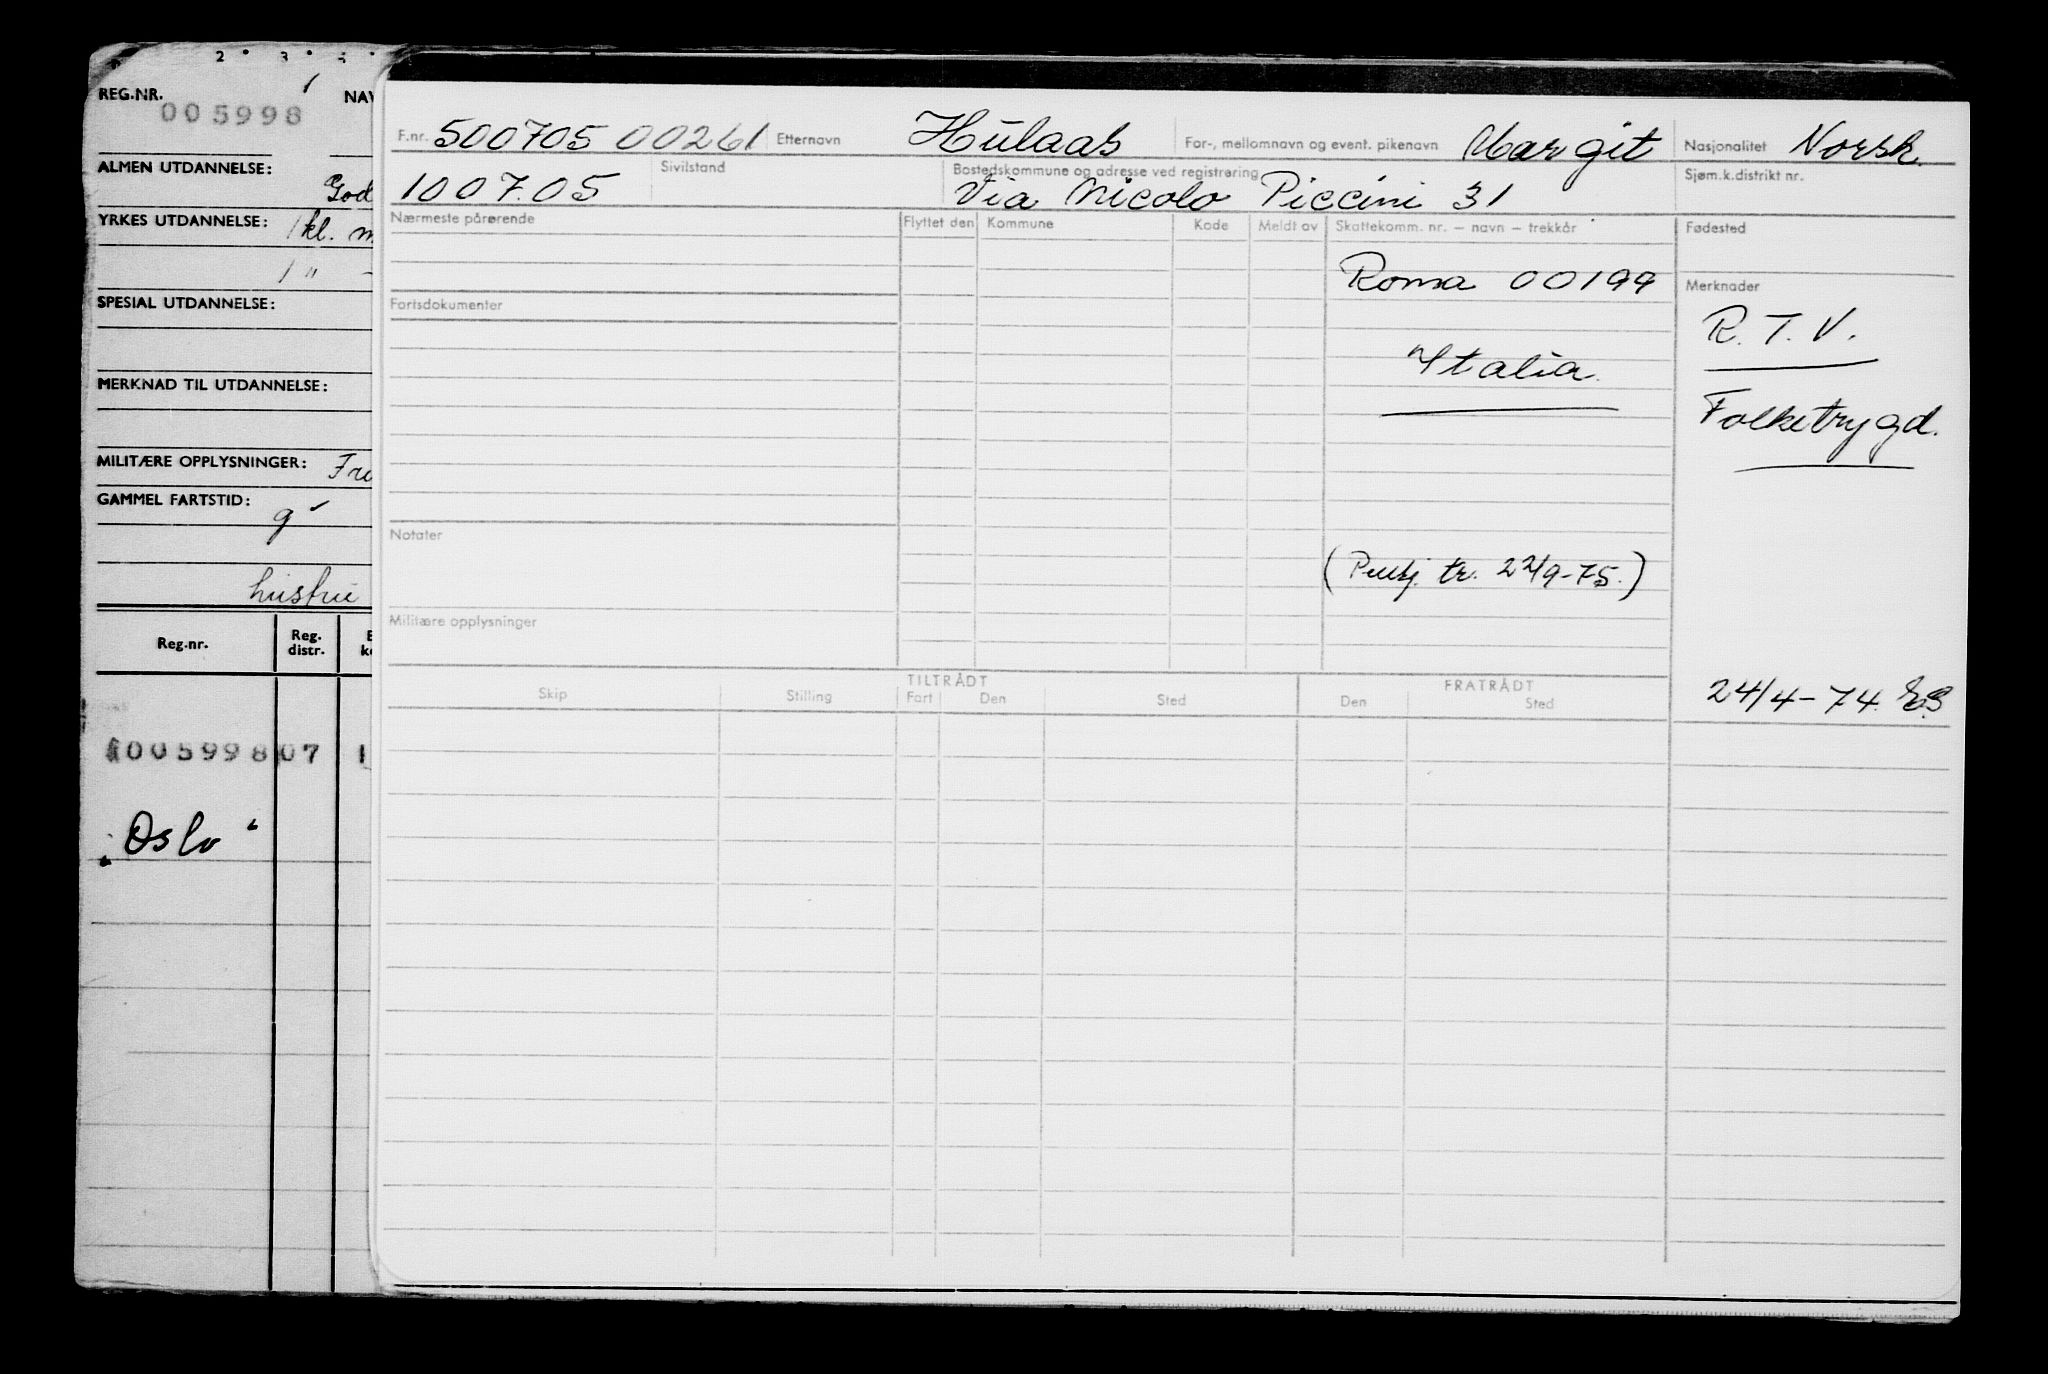 2 3
REG.NR. 1 NAV
005998
ALMEN UTDANNELSE:
God
YRKES UTDANNELSE: 1 kl. m
1 " -
SPESIAL UTDANNELSE:
MERKNAD TIL UTDANNELSE:
MILITÆRE OPPLYSNINGER:
GAMMEL FARTSTID:
hustru
Reg.nr. Reg. distr.
005998 07 1
"Oslo"
F.nr. 500705 00261 Etternavn Hulaas For-, mellomnavn og event. pikenavn Margit Nasjonalitet Norsk
100705 Sivilstand Bostedskommune og adresse ved registrering Via Nicolo Piccini 31 Sjøm.k.distrikt nr.
Nærmeste pårørende Flyttet den Kommune Kode Meldt av Skattekomm. nr. — navn — trekkår Fødested
Roma 00199 Merknader
Fartsdokumenter R.T.V.
Italia
Folketrygd.
Notater
(Pensj. tr. 22/9-75.)
Militære opplysninger
TILTRÅDT FRATRÅDT 24/4-74
Skip Stilling Fart Den Sted Den Sted